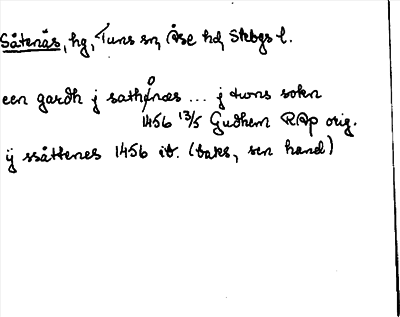 Såtenäs, hg, Tuns sn, Åse hd, Skbgs l.
een gardh j sathånæs ... j twns sokn
1456 13/5 Gudhem RAp orig.
ij ssåttenes 1456 ib. (baks, sen hand)